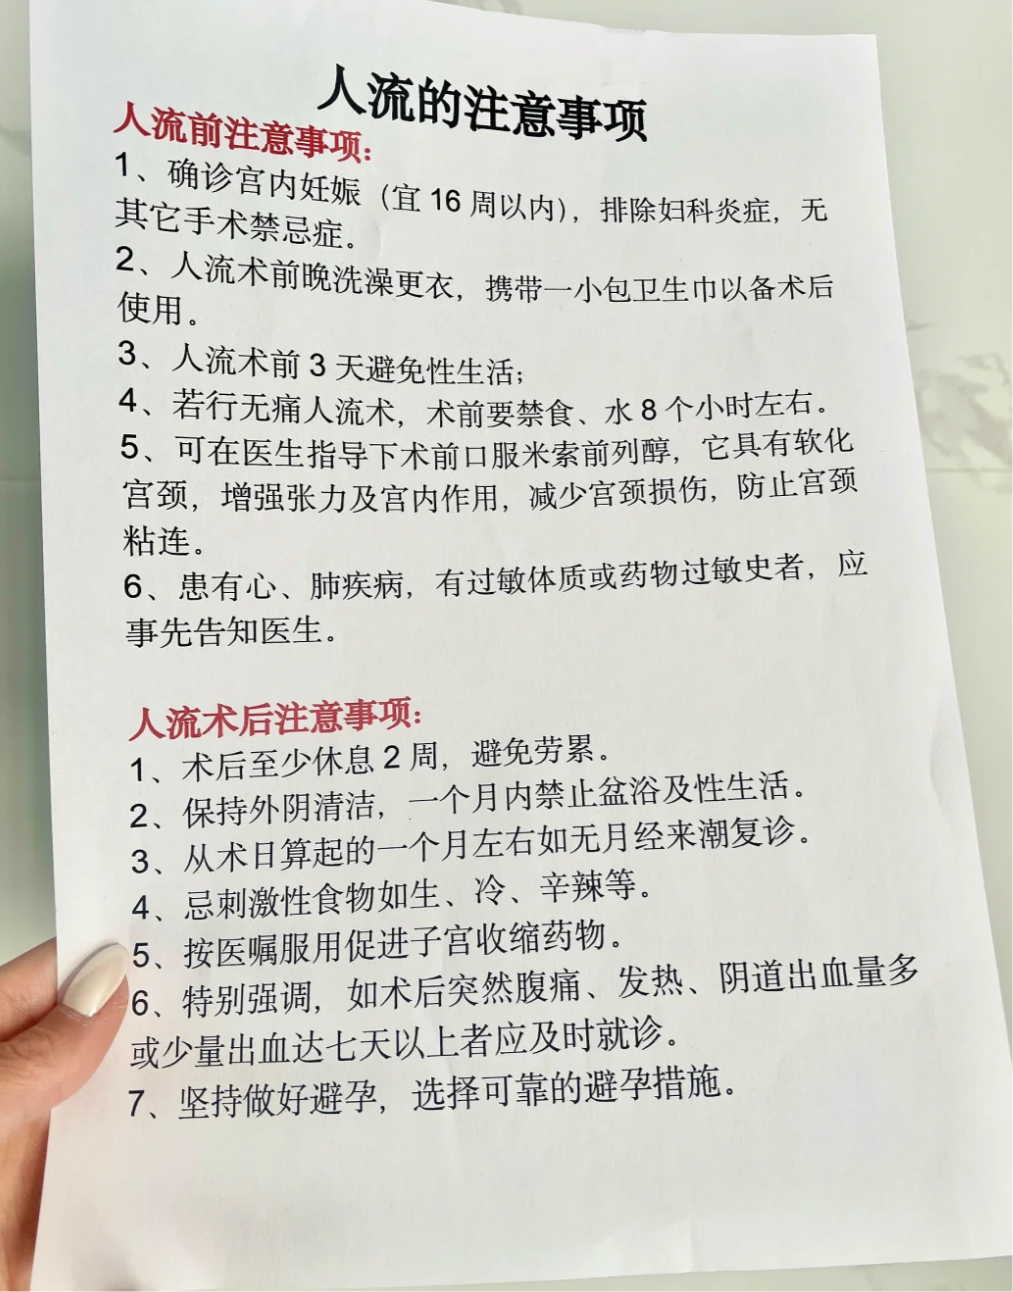 人流的注意事项
人流前注意事项:
1、确诊宫内妊娠（宜 16 周以内），排除妇科炎症，无
其它手术禁忌症。
2、人流术前晚洗澡更衣，携带一小包卫生巾以备术后
使用。
3、人流术前 3 天避免性生活；
4、若行无痛人流术，术前要禁食、水 8 个小时左右。
5、可在医生指导下术前口服米索前列醇，它具有软化
宫颈，增强张力及宫内作用，减少宫颈损伤，防止宫颈
粘连。
6、患有心、肺疾病，有过敏体质或药物过敏史者，应
事先告知医生。
人流术后注意事项:
1、术后至少休息 2 周，避免劳累。
2、保持外阴清洁，一个月内禁止盆浴及性生活。
3、从术日算起的一个月左右如无月经来潮复诊。
4、忌刺激性食物如生、冷、辛辣等。
5、按医嘱服用促进子宫收缩药物。
6、特别强调，如术后突然腹痛、发热、阴道出血量多
或少量出血达七天以上者应及时就诊。
7、坚持做好避孕，选择可靠的避孕措施。